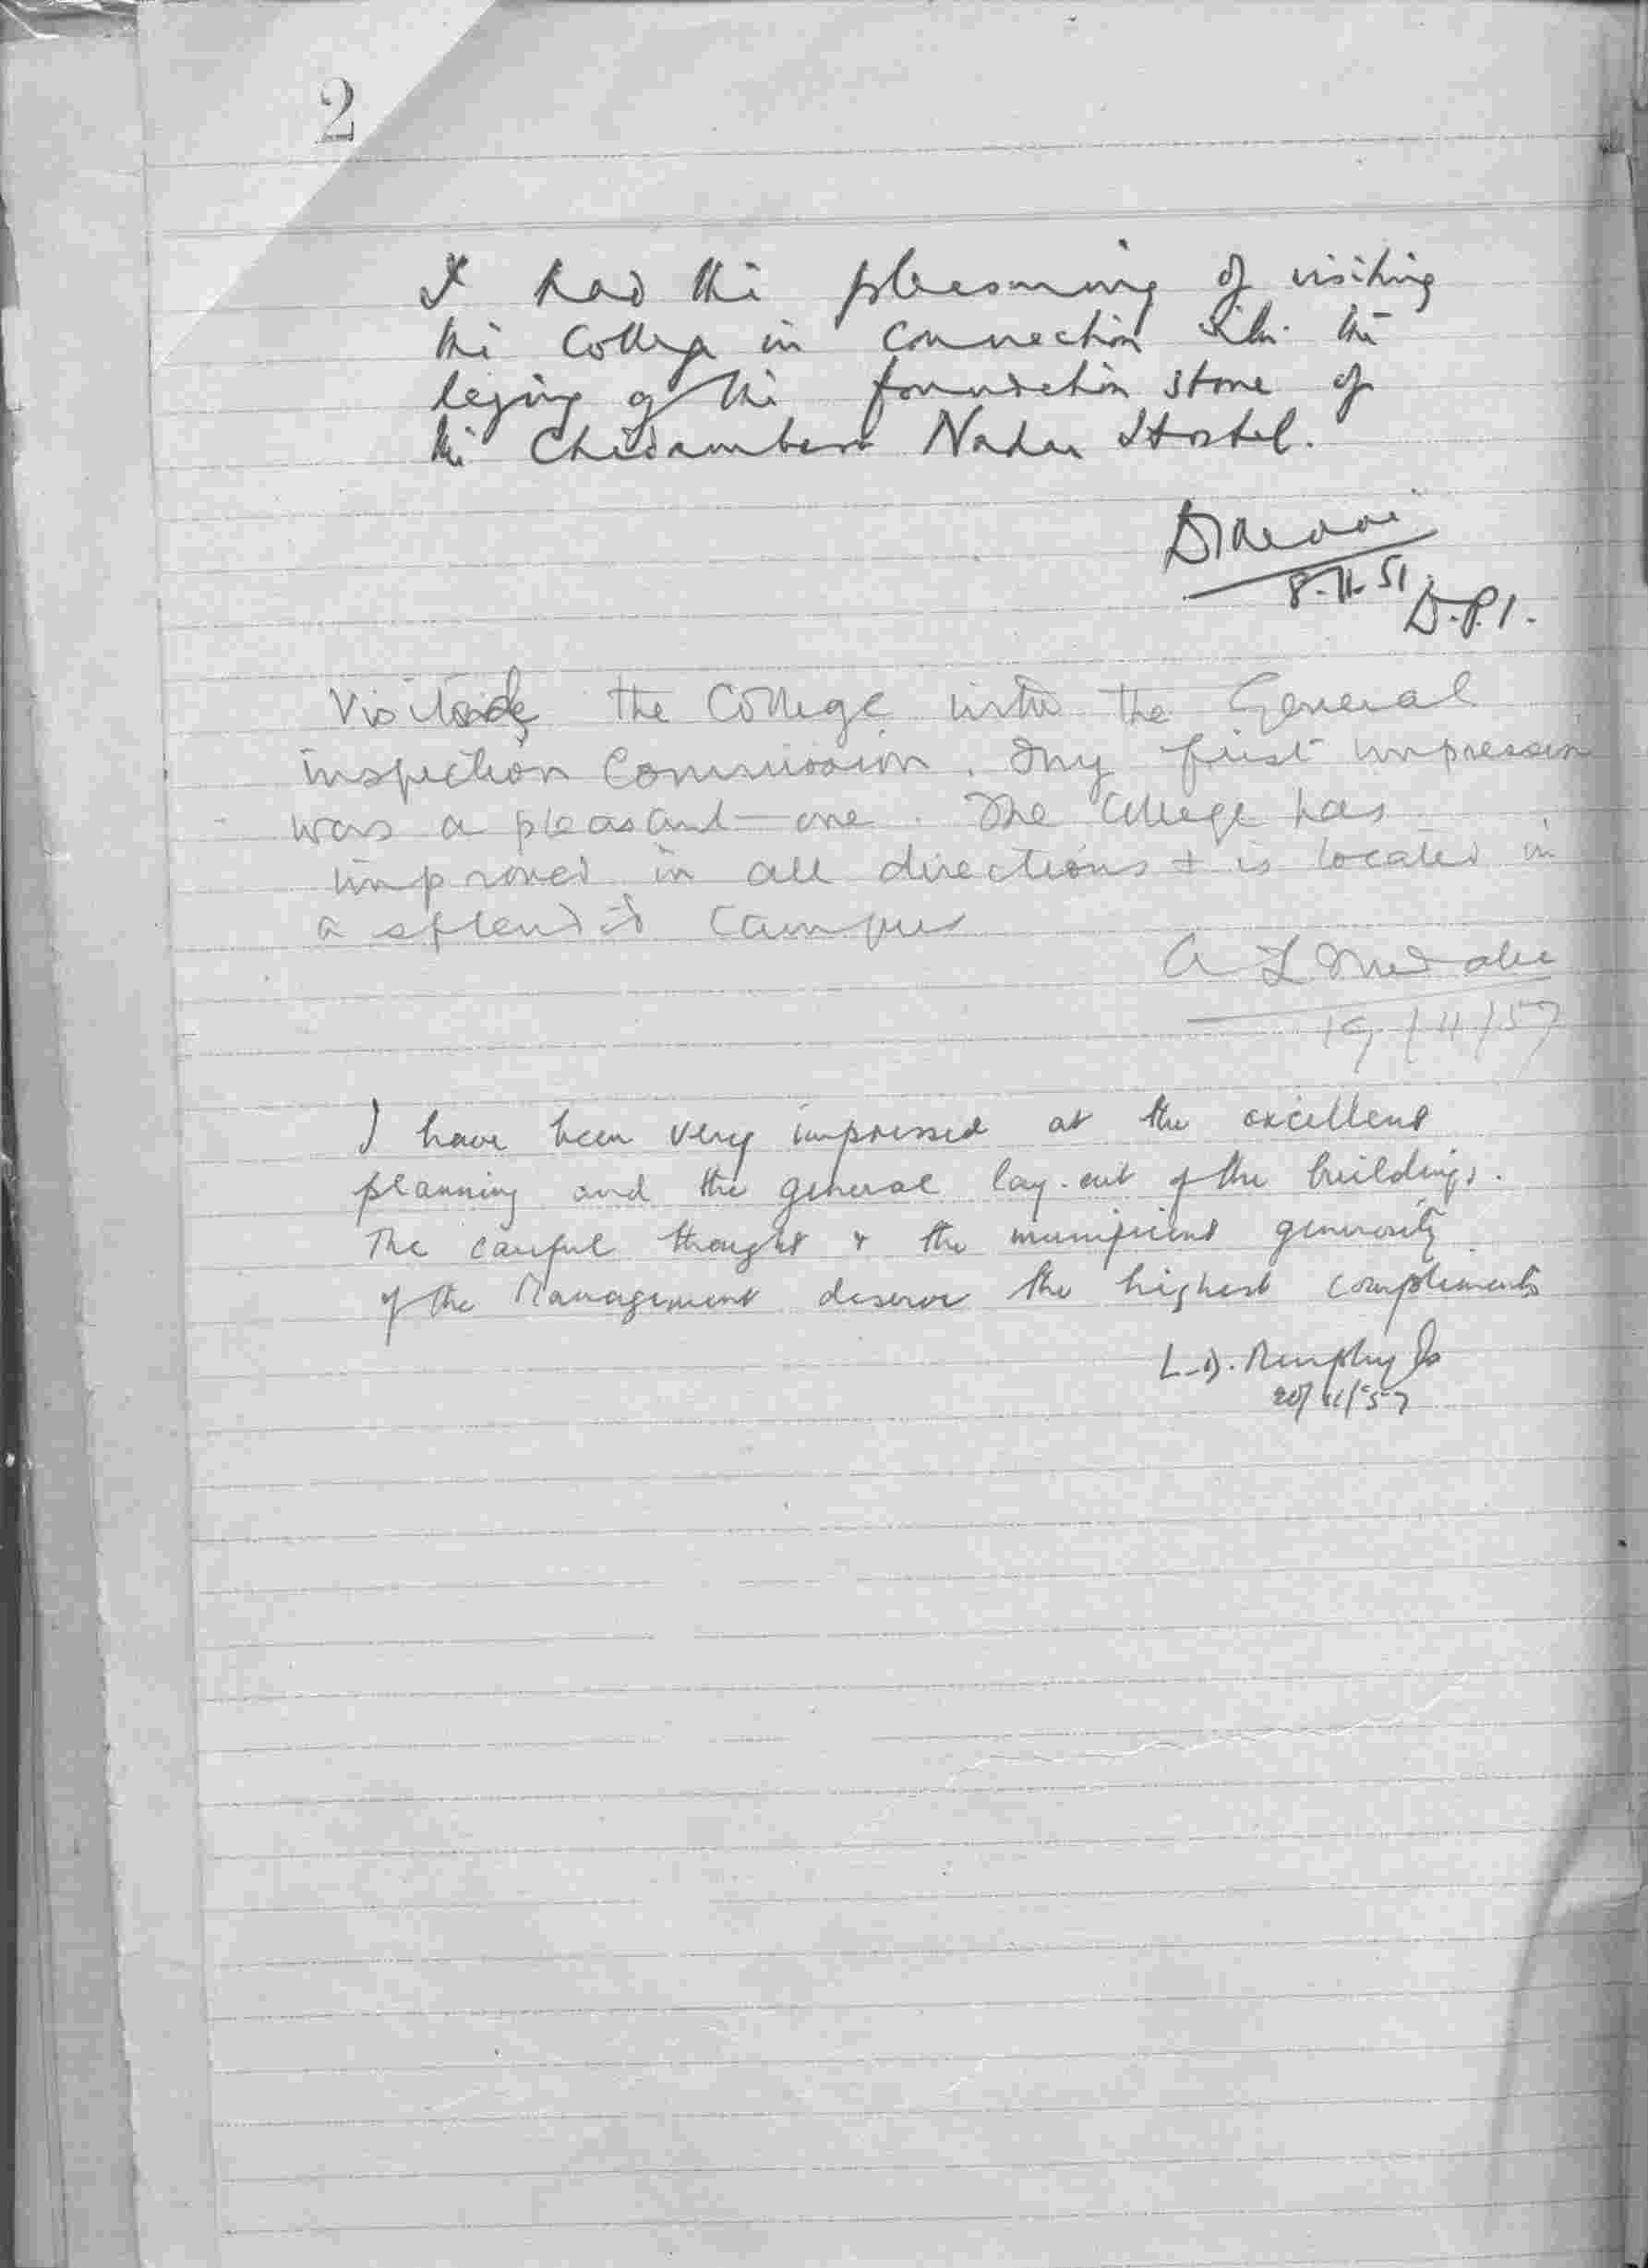 2
I had the pleasuring of visiting
the College in connection with the
laying of the foundation stone of
the Chidambara Nadar Hostel.
8.11.51
D.P.I.
Visited the College with the General
inspection Commission. My first impression
was a pleasant one. The College has
improved in all directions + is located in
a splendid campus
A L Mudaliar
19/11/57
I have been very impressed at the excellent
planning and the general lay-out of the buildings.
The careful thought & the munificent generosity
of the Management deserve the highest compliments
L.D. Murphy SJ
20/11/57